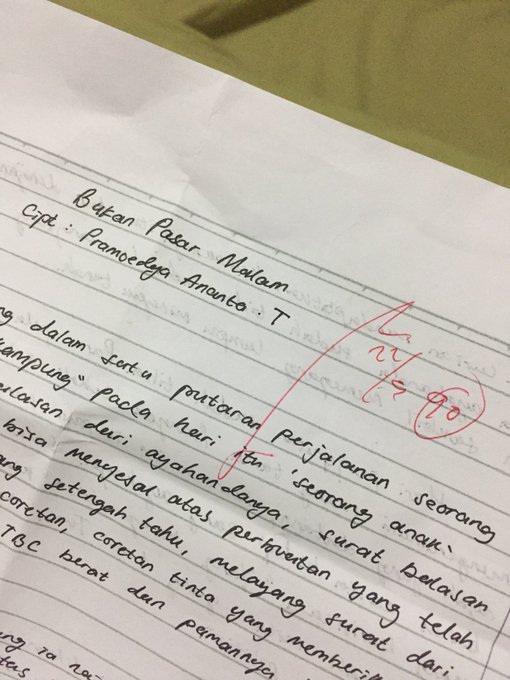 Bukan Pasar Malam
Cipt : Pramoedya Ananto . T
22/9 90
dalam satu putaran perjalanan seorang
kampung" pada hari itu 'seorang anak'
balasan dari ayahandanya, surat balasan
bisa menyesal atas perbuatan yang telah
setengah tahu, melayang surat dari
coretan, coretan tinta yang
TBC berat dan pamannya